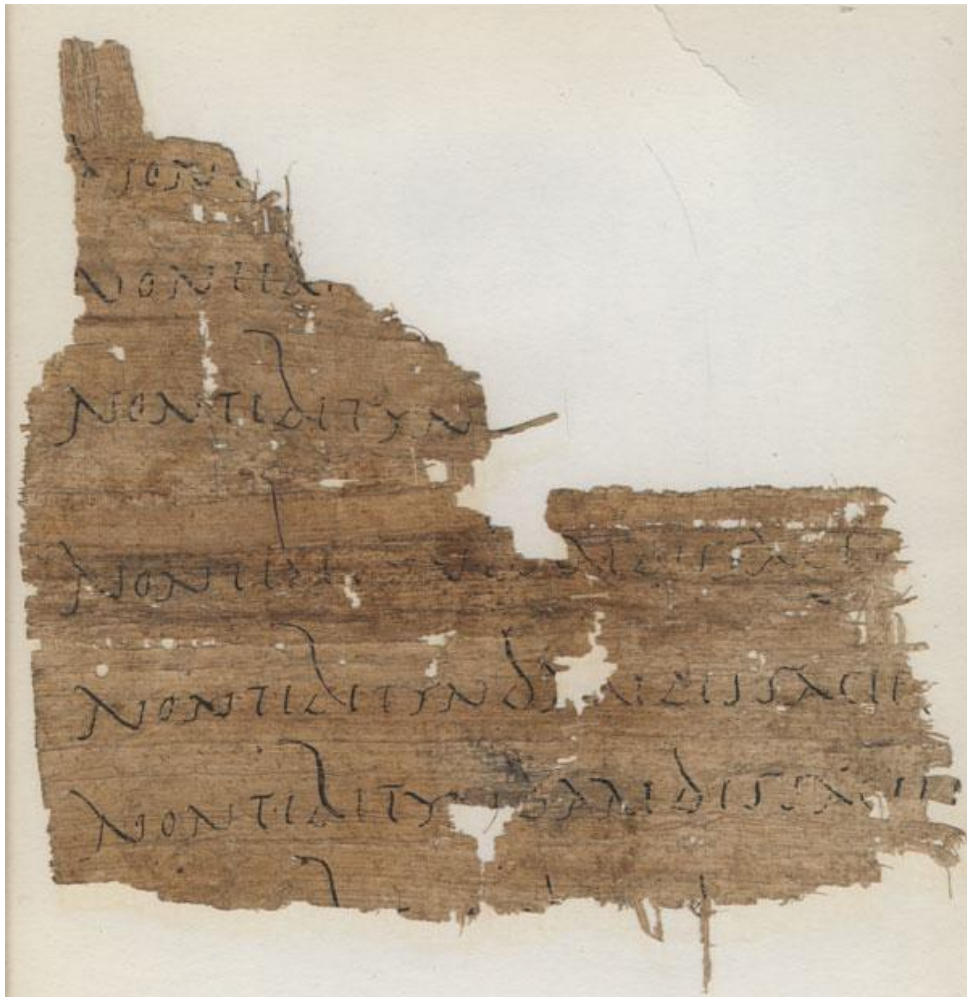 non
non tib
non tibi tyn
non tibi tyndaridis fac
non tibi tyndaridis facie
non tibi tyndaridis facie